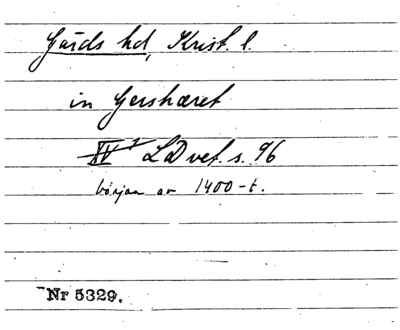 Gärds hd, Krist. l.
in Gershæret
XV² LDvet. s. 96
början av 1400-t.
Nr 5329.